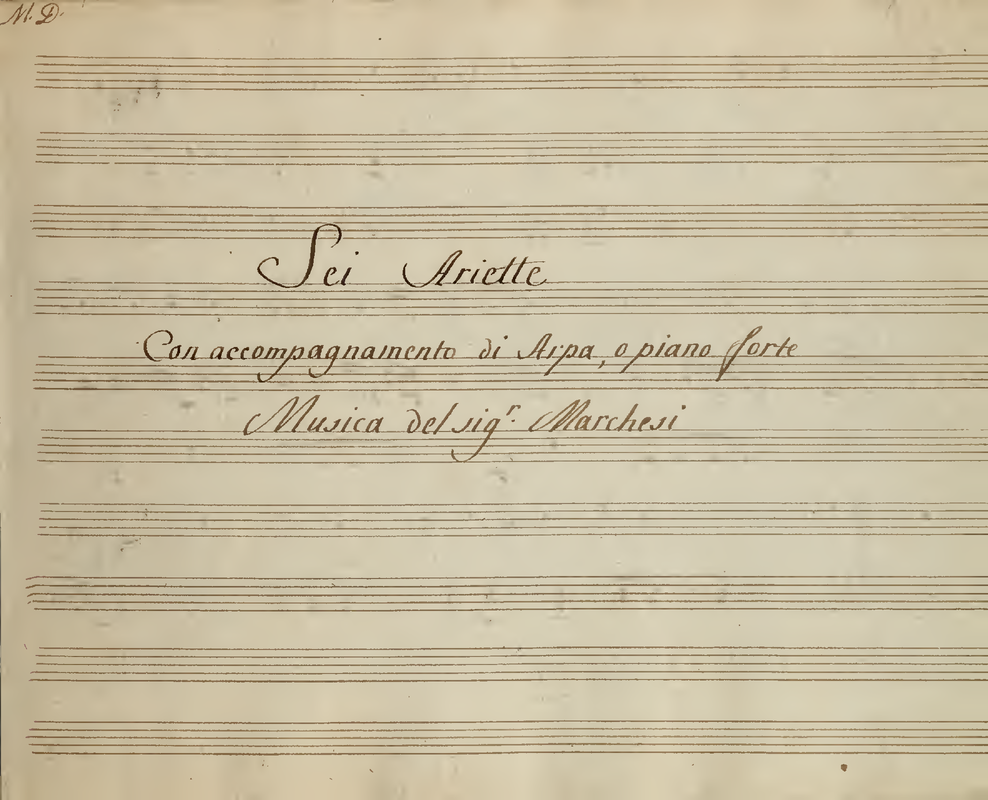 M. D.
Sei Ariette
Con accompagnamento di Arpa, o piano forte
Musica del sig.r Marchesi